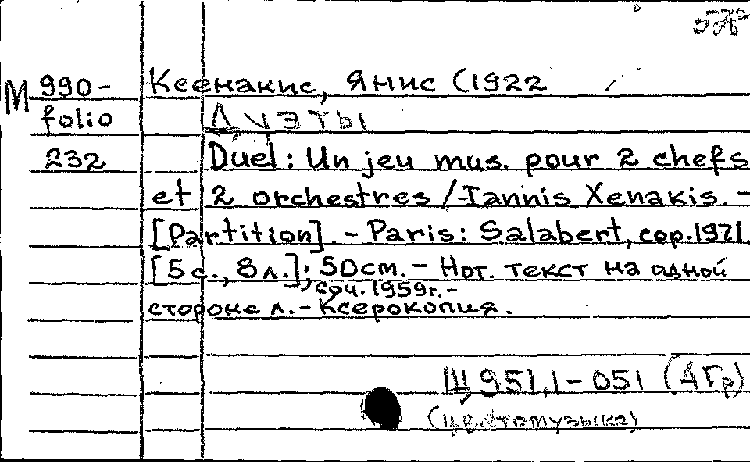 М 990- Ксенакис, Янис (1922
folio Дуэты
232 Duel: Un jeu mus. pour 2 chefs
et 2 orchestres / Iannis Xenakis. –
[Partition]. – Paris: Salabert, cop. 1971.
[5 с., 8 л.]; 50см. – Нот. текст на одной
соч. 1959г. –
стороне л. – Ксерокопия.
Щ951,1-051 (4Гр)